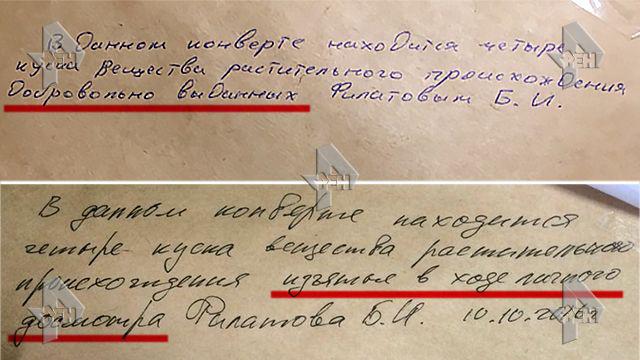 В данном конверте находится четыре
куска вещества растительного происхождения
добровольно выданных Филатовым Б. И.
РЕН
В данном конверте находится
четыре куска вещества растительного
происхождения изъятые в ходе личного
досмотра Филатова Б.И. 10.10.2016г